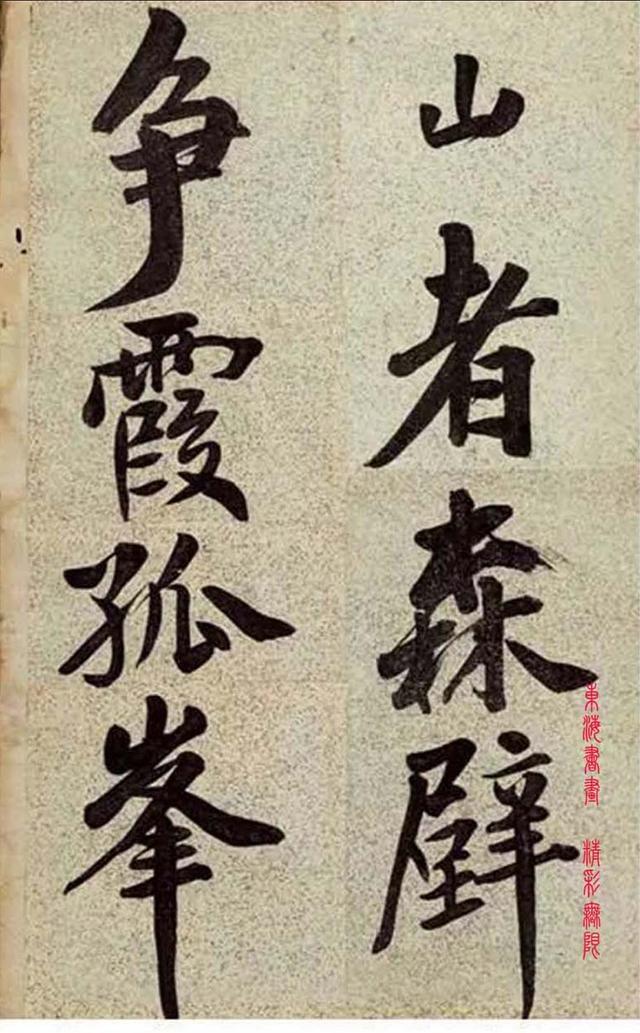 山者森壁
争霞孤峯
東海書畫 精彩無限